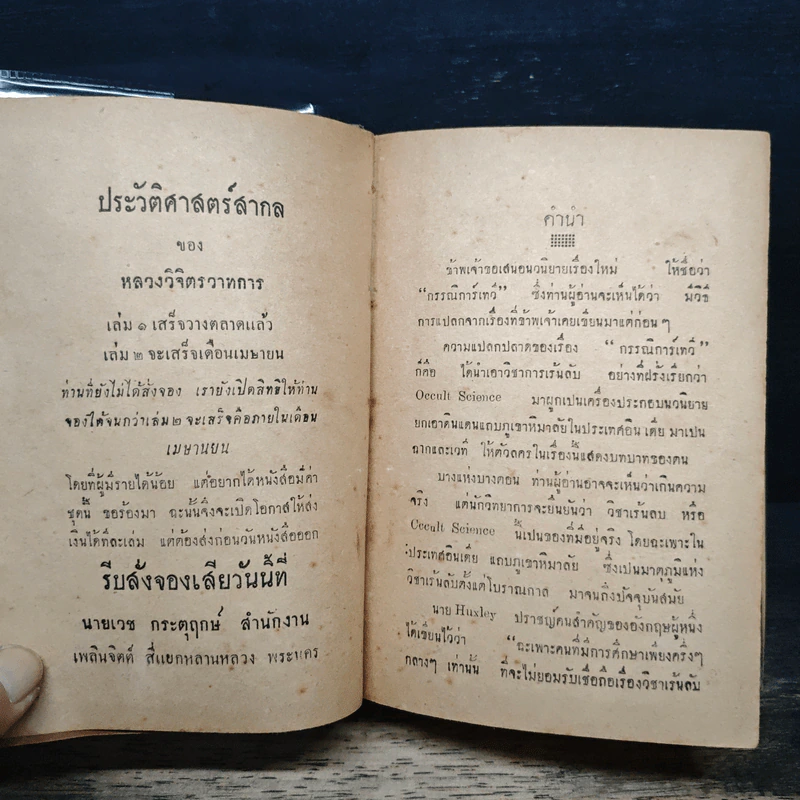 ประวัติศาสตร์สากล
ของ
หลวงวิจิตรวาทการ
เล่ม ๑ เสร็จวางตลาดแล้ว
เล่ม ๒ จะเสร็จเดือนเมษายน
ท่านที่ยังไม่ได้สั่งจอง เรายังเปิดสิทธิให้ท่าน
จองได้จนกว่าเล่ม ๒ จะเสร็จคือภายในเดือน
เมษายน
โดยที่ผู้มีรายได้น้อย แต่อยากได้หนังสือมีค่า
ชุดนี้ ขอร้องมา ฉะนั้นจึงจะเปิดโอกาสให้ส่ง
เงินได้ทีละเล่ม แต่ต้องส่งก่อนวันหนังสือออก
รีบสั่งจองเสียวันนี้ที่
นายเวช กระตุฤกษ์ สำนักงาน
เพลินจิตต์ สี่แยกหลานหลวง พระนคร
คำนำ
ข้าพเจ้าขอเสนอนวนิยายเรื่องใหม่ ให้ชื่อว่า
“กรรณิการ์เทวี” ซึ่งท่านผู้อ่านจะเห็นได้ว่า มีวิธี
การแปลกจากเรื่องที่ข้าพเจ้าเคยเขียนมาแต่ก่อน ๆ
ความแปลกปลาดของเรื่อง “กรรณิการ์เทวี”
ก็คือ ได้นำเอาวิชาการเร้นลับ อย่างที่ฝรั่งเรียกว่า
Occult Science มาผูกเป็นเครื่องประกอบนวนิยาย
ยกเอาดินแดนแถบภูเขาหิมาลัยในประเทศอินเดีย มาเป็น
ฉากและเวที ให้ตัวละครในเรื่องนี้แสดงบทบาทของตน
บางแห่งบางตอน ท่านผู้อ่านอาจจะเห็นว่าเกินความ
จริง แต่นักวิทยาการจะยืนยันว่า วิชาเร้นลับ หรือ
Occult Science นี้เป็นของที่มีอยู่จริง โดยฉะเพาะใน
ประเทศอินเดีย แถบภูเขาหิมาลัย ซึ่งเป็นมาตุภูมิแห่ง
วิชาเร้นลับตั้งแต่โบราณกาล มาจนถึงปัจจุบันสมัย
นาย Huxley ปราชญ์คนสำคัญของอังกฤษผู้หนึ่ง
ได้เขียนไว้ว่า “ฉะเพาะคนที่มีการศึกษาเพียงครึ่งๆ
กลางๆ เท่านั้น ที่จะไม่ยอมรับเชื่อถือเรื่องวิชาเร้นลับ